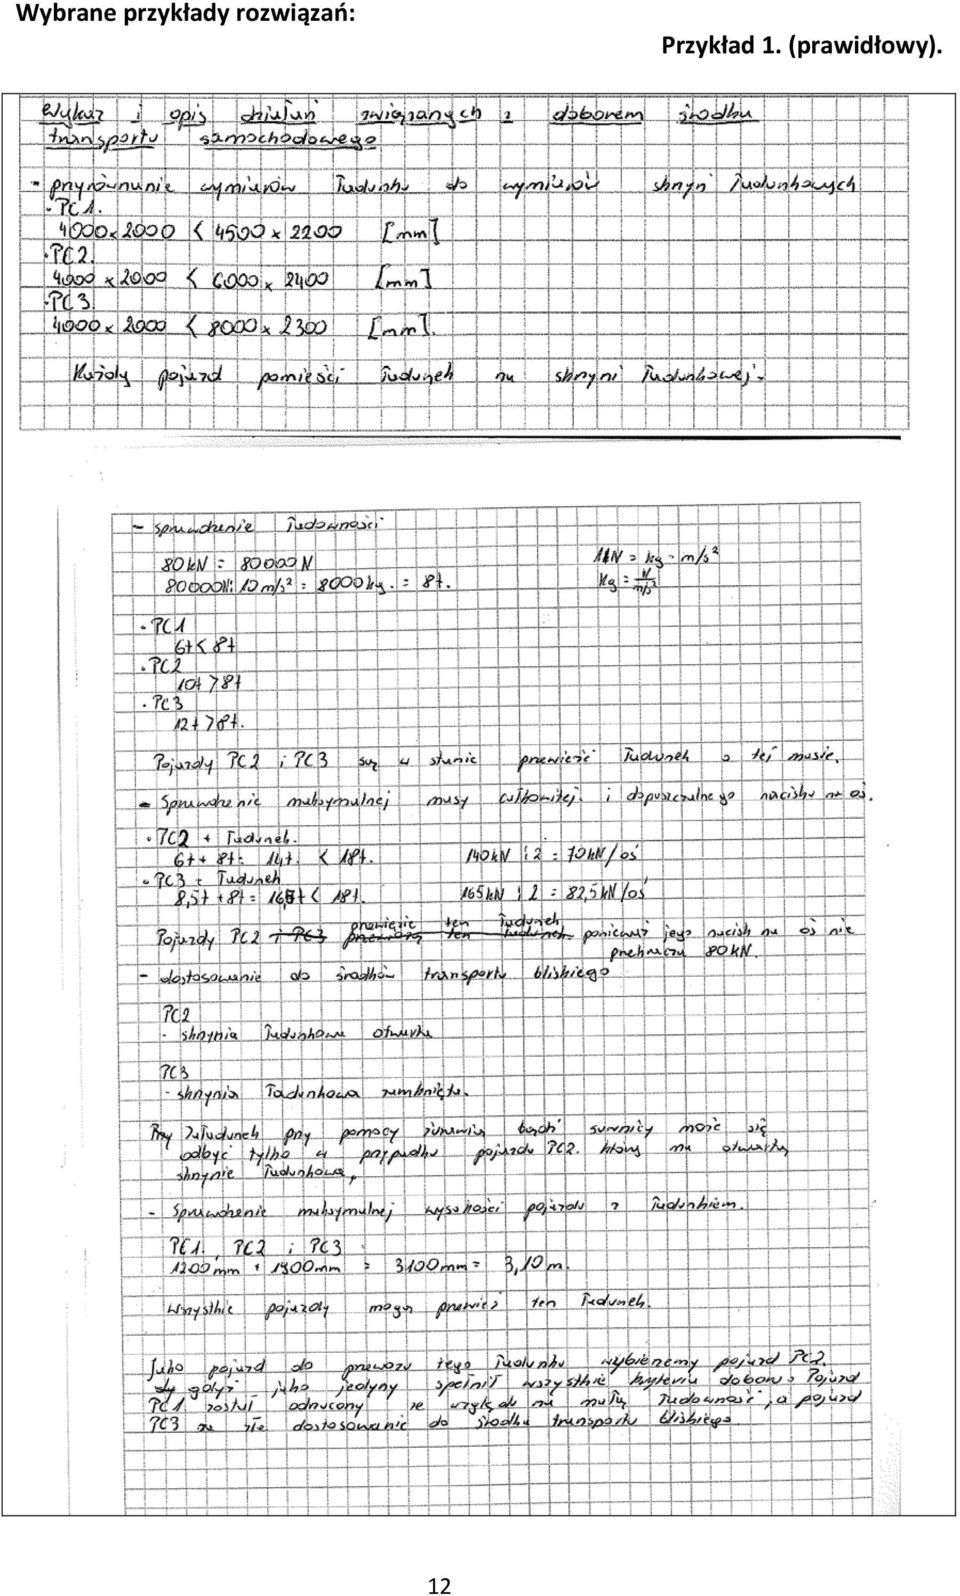 Wybrane przykłady rozwiązań:
Przykład 1. (prawidłowy).
Wykaz i opis działań związanych z doborem środku
transportu samochodowego
- przyrównanie wymiarów ładunku do wymiarów skrzyń ładunkowych
· PC1.
4000x2000 < 4500 x 2200 [mm]
· PC2.
4000 x 2000 < 6000 x 2400 [mm]
· PC3.
4000 x 2000 < 8000 x 2300 [mm].
Każdy pojazd pomieści ładunek na skrzyni ładunkowej.
- sprawdzenie ładowności
80kN = 80000N 1N = kg · m/s²
80000N: 10 m/s² = 8000kg. = 8t. Kg = N/m/s²
· PC1
6t < 8t
· PC2
10t > 8t
· PC3
12t > 8t.
Pojazdy PC2 i PC3 są w stanie przewieźć ładunek o tej masie.
- Sprawdzenie maksymalnej masy całkowitej i dopuszczalnego nacisku na oś.
· PC2 + ładunek.
6t + 8t = 14t. < 18t. 140kN : 2 = 70kN/oś
· PC3 + Ładunek
8,5t + 8t = 16,5t < 18t. 165kN : 2 = 82,5kN/oś
przewiezie ten ładunek
Pojazdy PC2 i PC3 przewiozą ten ładunek. ponieważ jego nacisk na oś nie
przekracza 80kN.
- dostosowanie do środków transportu bliskiego
PC2
- skrzynia ładunkowa otwarta
PC3
- skrzynia ładunkowa zamknięta.
Przy załadunek przy pomocy żurawia bądź suwnicy może się
odbyć tylko w przypadku pojazdu PC2. który ma otwartą
skrzynie ładunkową.
- Sprawdzenie maksymalnej wysokości pojazdu z ładunkiem.
PC1, PC2 i PC3
1200mm + 1900mm = 3100mm = 3,10m.
Wszystkie pojazdy mogą przewieź ten ładunek.
Jako pojazd do przewozu tego ładunku wybierzemy pojazd PC2.
gdyż jako jedyny spełnił wszystkie kryteria doboru. Pojazd
PC1 został odrzucony ze względu na małą ładowność, a pojazd
PC3 za złe dostosowanie do środka transportu bliskiego
12